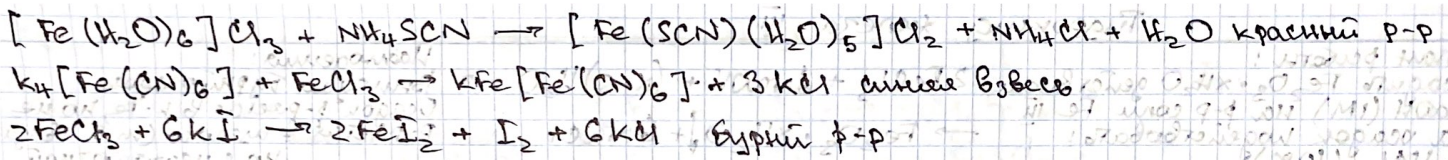 [Fe(H₂O)₆]Cl₃ + NH₄SCN → [Fe(SCN)(H₂O)₅]Cl₂ + NH₄Cl + H₂O красный р-р
K₄[Fe(CN)₆] + FeCl₃ → KFe[Fe(CN)₆] + 3KCl синяя взвесь
2FeCl₃ + 6KI → 2FeI₂ + I₂ + 6KCl бурый р-р